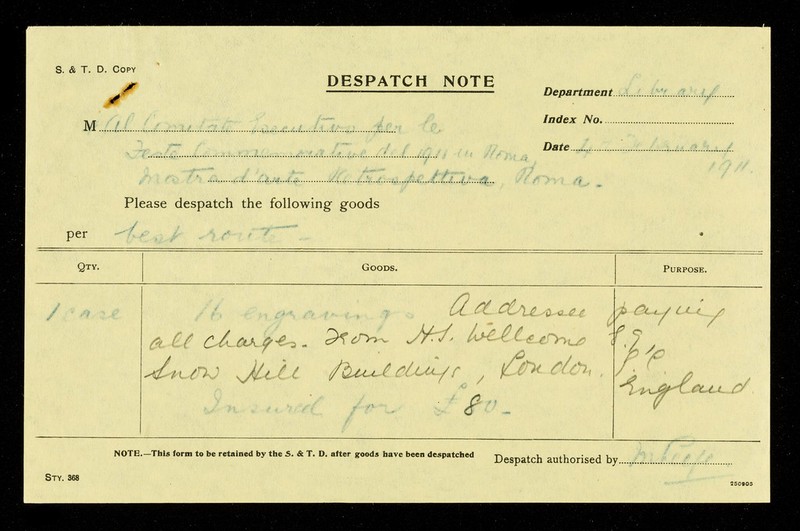 S. & T. D. COPY
DESPATCH NOTE
Department Library
M Al Comitato Esecutivo per le
Index No.
Feste Commemorative del 1911 in Roma
Date February
1911.
Mostra d'Arte Retrospettiva, Roma.
Please despatch the following goods
per best route
QTY. GOODS. PURPOSE.
1 case 16 engravings Addressee paying
all charges. From H.S. Wellcome
Snow Hill Buildings, London. England
Insured for £80-
NOTE.—This form to be retained by the S. & T. D. after goods have been despatched
Despatch authorised by
STY. 368
250203